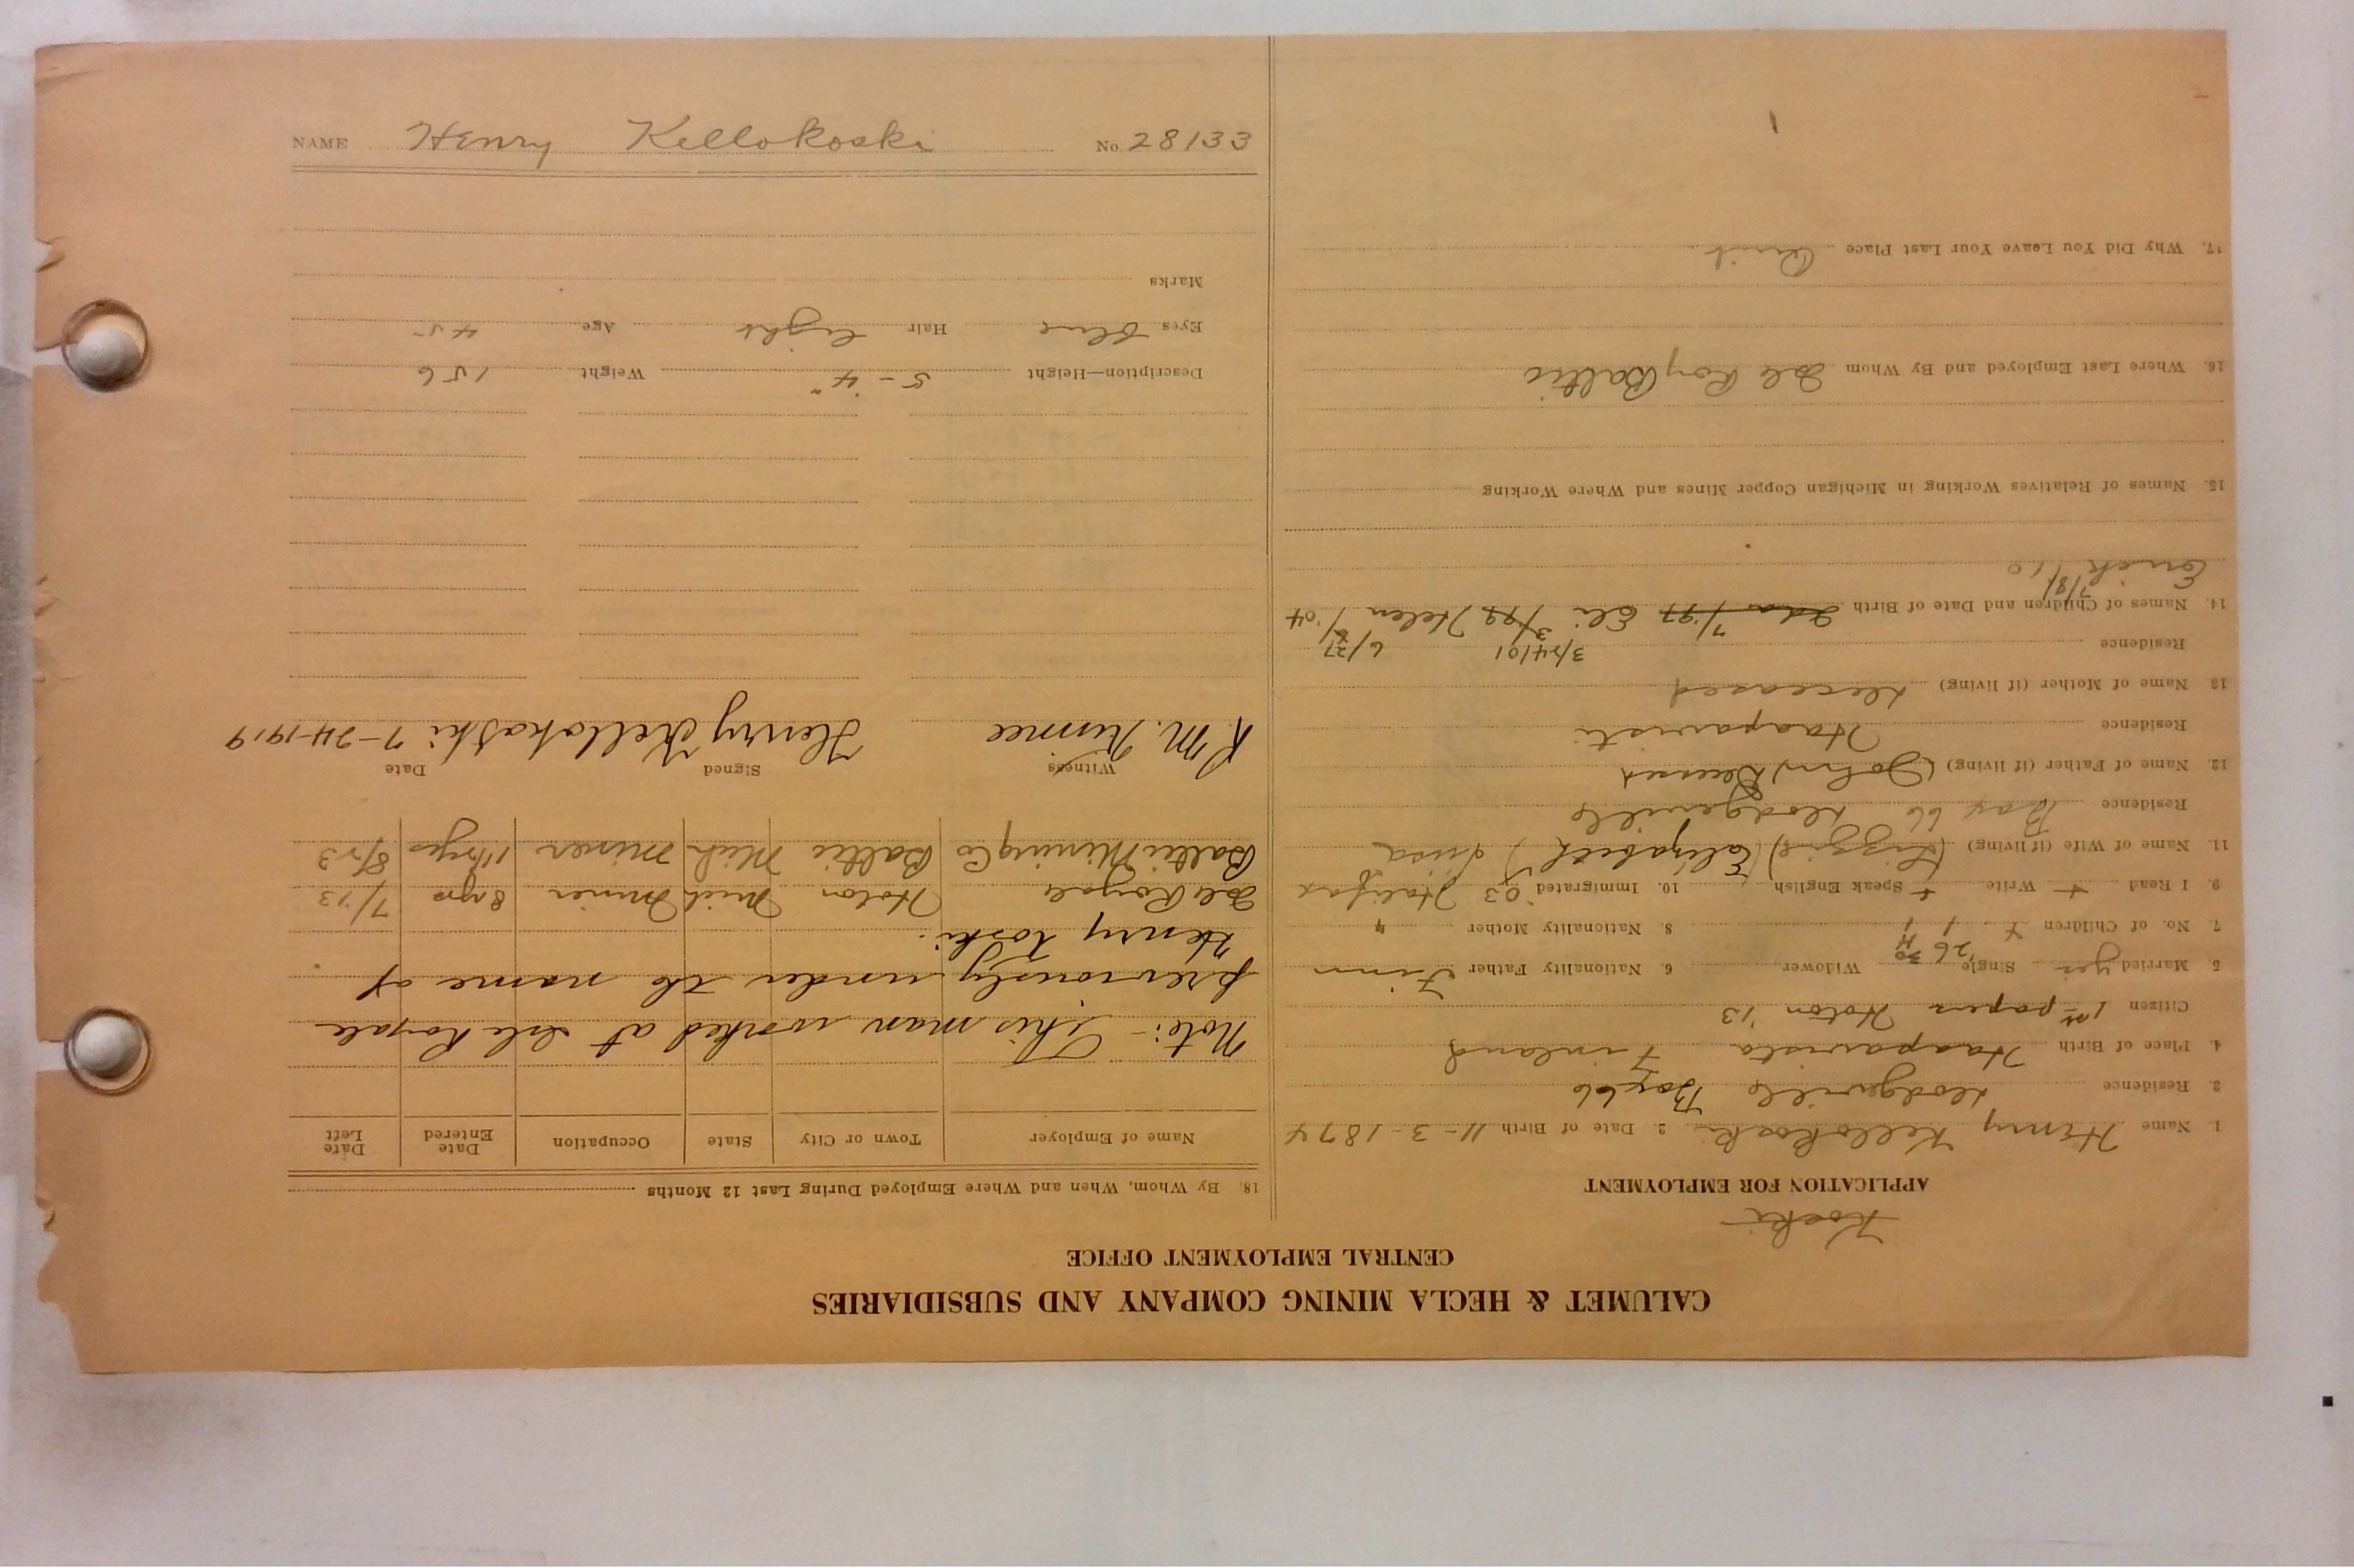 NAME Henry Kellokoski No. 28133
CALUMET & HECLA MINING COMPANY AND SUBSIDIARIES
CENTRAL EMPLOYMENT OFFICE
Koski
APPLICATION FOR EMPLOYMENT
1. Name Henry Kellokoski 2. Date of Birth 11-3-1874
3. Residence Dodgeville Box 66
4. Place of Birth Haapavista Finland
Citizen 1st papers Hoton '13
5. Married yes Single Widower 6. Nationality Father Finn
26 30 H
7. No. of Children 4 8. Nationality Mother "
9. I Read + Write + Speak English 10. Immigrated '03 Halifax
11. Name of Wife (if living) (Lizzie) (Elizabeth) Lusa
Residence Box 66 Dodgeville
12. Name of Father (if living) (John) Deceased
Residence Haapavisti
13. Name of Mother (if living) deceased
Residence
3/24/01 6/27
14. Names of Children and Date of Birth Ida 7/97 Eli 3/99 Helen 6/04
7/8/
Erick /10
15. Names of Relatives Working in Michigan Copper Mines and Where Working
16. Where Last Employed and By Whom Isle Roy Baltic
17. Why Did You Leave Your Last Place Quit
18. By Whom, When and Where Employed During Last 12 Months
Name of Employer Town or City State Occupation Date Entered Date Left
Note:- This man worked at Isle Royale
previously under the name of
Henry Koski.
Isle Royale Hoton Mich Miner 8 yrs 7/13
Baltic Mining Co Baltic Mich Miner 11 yrs 8/23
Witness Signed Date
R. M. Henry Kellokoski 7-24-1919
Description—Height 5-4" Weight 156
Eyes blue Hair light Age 45
Marks